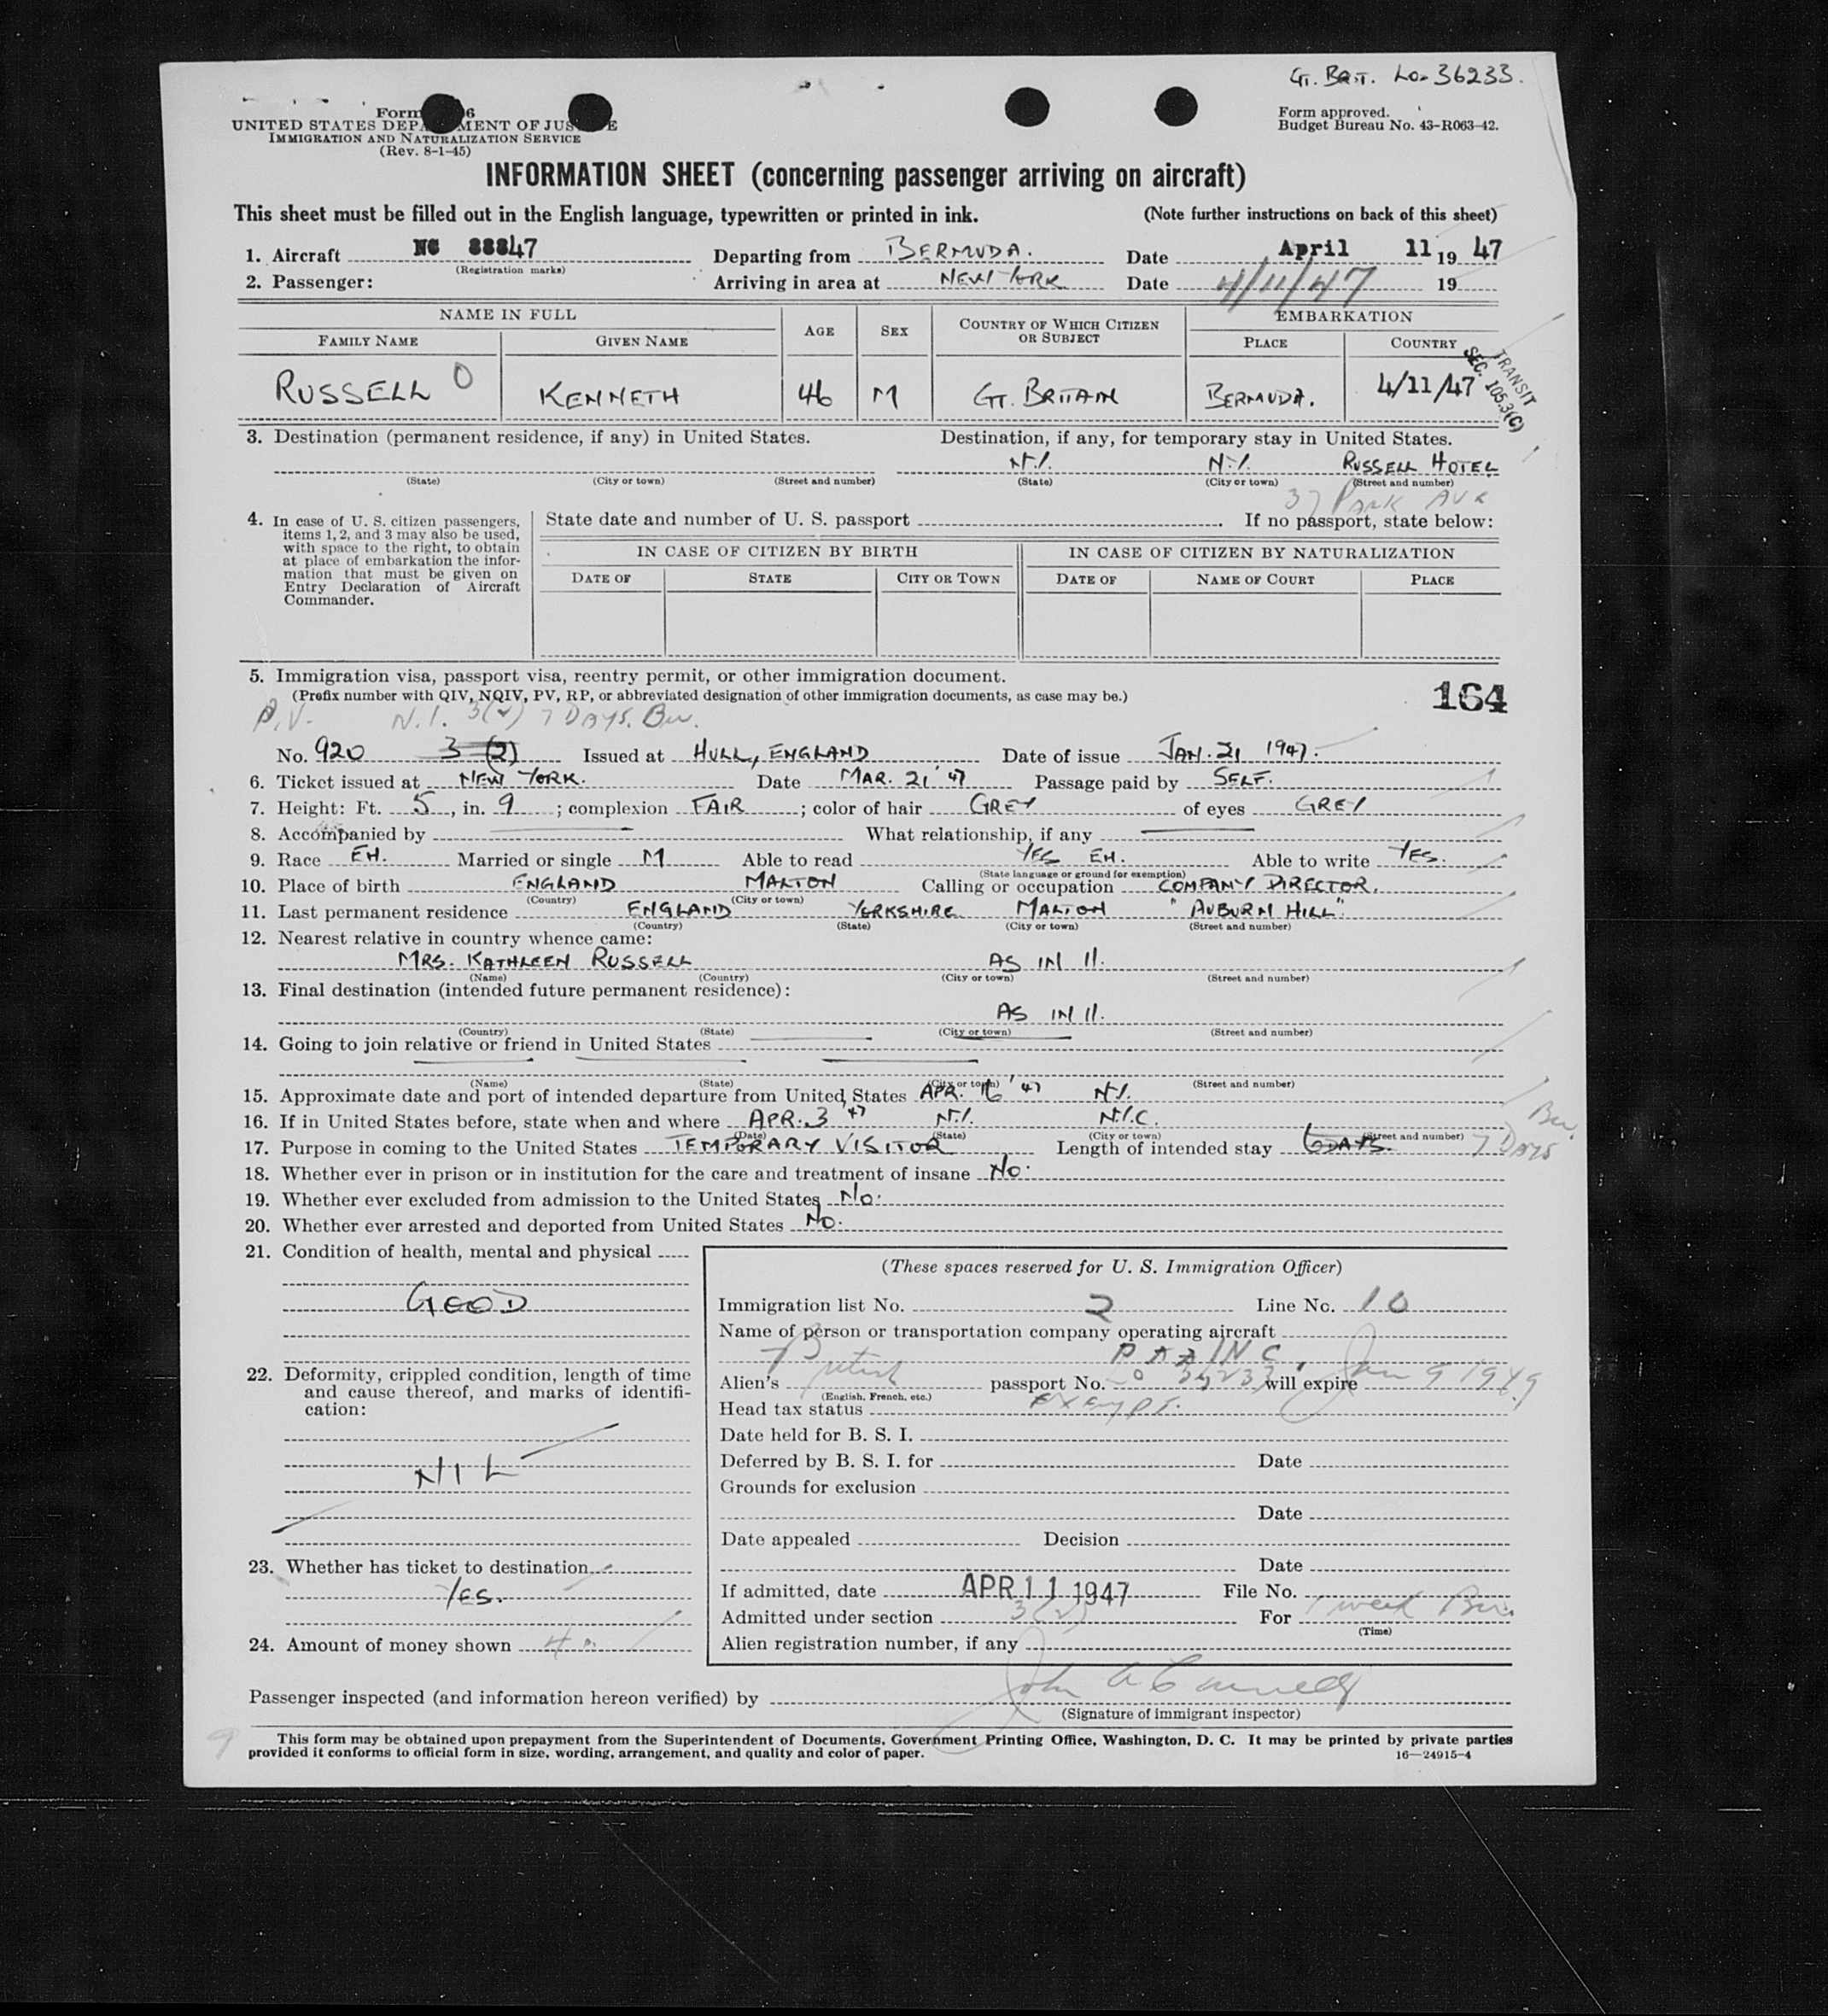 GT. BRIT. LO-36233.
Form 6
UNITED STATES DEPARTMENT OF JUSTICE
IMMIGRATION AND NATURALIZATION SERVICE
(Rev. 8-1-45)
Form approved.
Budget Bureau No. 43-R063-42.
INFORMATION SHEET (concerning passenger arriving on aircraft)
This sheet must be filled out in the English language, typewritten or printed in ink. (Note further instructions on back of this sheet)
1. Aircraft NC 88847 Departing from BERMUDA. Date April 11 19 47
(Registration marks)
2. Passenger: Arriving in area at NEW YORK Date 4/11/47 19
NAME IN FULL AGE SEX COUNTRY OF WHICH CITIZEN OR SUBJECT EMBARKATION
FAMILY NAME GIVEN NAME PLACE COUNTRY
RUSSELL 0 KENNETH 46 M GT. BRITAIN BERMUDA. 4/11/47
TRANSIT
SEC. 105.3(C)
3. Destination (permanent residence, if any) in United States. Destination, if any, for temporary stay in United States.
N.Y. N.Y. RUSSELL HOTEL
(State) (City or town) (Street and number) (State) (City or town) (Street and number)
37 PARK AVE
4. In case of U. S. citizen passengers, items 1, 2, and 3 may also be used, with space to the right, to obtain at place of embarkation the information that must be given on Entry Declaration of Aircraft Commander.
State date and number of U. S. passport . If no passport, state below:
IN CASE OF CITIZEN BY BIRTH IN CASE OF CITIZEN BY NATURALIZATION
DATE OF STATE CITY OR TOWN DATE OF NAME OF COURT PLACE
5. Immigration visa, passport visa, reentry permit, or other immigration document.
(Prefix number with QIV, NQIV, PV, RP, or abbreviated designation of other immigration documents, as case may be.)
164
P.V. N.I. 3(2) 7 DAYS. Ber.
No. 920 3 (2) Issued at HULL, ENGLAND Date of issue JAN. 21 1947.
6. Ticket issued at NEW YORK. Date MAR. 21 '47 Passage paid by SELF.
7. Height: Ft. 5, in. 9; complexion FAIR; color of hair GREY of eyes GREY
8. Accompanied by What relationship, if any
9. Race EH. Married or single M Able to read YES EH. Able to write YES.
(State language or ground for exemption)
10. Place of birth ENGLAND MALTON Calling or occupation COMPANY DIRECTOR.
(Country) (City or town)
11. Last permanent residence ENGLAND YORKSHIRE MALTON "AUBURN HILL"
(Country) (State) (City or town) (Street and number)
12. Nearest relative in country whence came:
MRS. KATHLEEN RUSSELL AS IN 11.
(Name) (Country) (City or town) (Street and number)
13. Final destination (intended future permanent residence):
AS IN 11.
(Country) (State) (City or town) (Street and number)
14. Going to join relative or friend in United States
(Name) (State) (City or town) (Street and number)
15. Approximate date and port of intended departure from United States APR. 16 '47 N.Y.
16. If in United States before, state when and where APR. 3 '47 N.Y. N.Y.C.
(Date) (State) (City or town) (Street and number)
17. Purpose in coming to the United States TEMPORARY VISITOR Length of intended stay 6 DAYS. 7 DAYS Ber.
18. Whether ever in prison or in institution for the care and treatment of insane NO.
19. Whether ever excluded from admission to the United States NO.
20. Whether ever arrested and deported from United States NO.
21. Condition of health, mental and physical
GOOD
22. Deformity, crippled condition, length of time and cause thereof, and marks of identification:
NIL
23. Whether has ticket to destination
YES.
24. Amount of money shown
(These spaces reserved for U. S. Immigration Officer)
Immigration list No. 2 Line No. 10
Name of person or transportation company operating aircraft
P A A INC.
Alien's British passport No. will expire Jan 9 1949
(English, French, etc.)
Head tax status Exempt.
Date held for B. S. I.
Deferred by B. S. I. for Date
Grounds for exclusion
Date
Date appealed Decision
Date
If admitted, date APR 11 1947 File No.
Admitted under section 3(2) For 1 week Ber.
(Time)
Alien registration number, if any
Passenger inspected (and information hereon verified) by John A
(Signature of immigrant inspector)
9
This form may be obtained upon prepayment from the Superintendent of Documents, Government Printing Office, Washington, D. C. It may be printed by private parties
provided it conforms to official form in size, wording, arrangement, and quality and color of paper. 16—24915-4